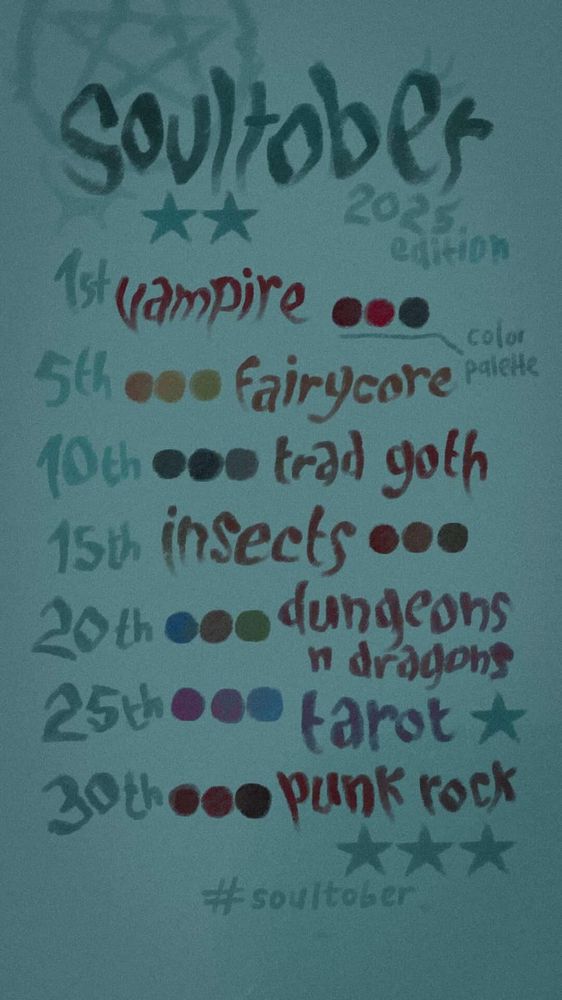 soultober
2025
edition
1st vampire
color
palette
5th fairycore
10th trad goth
15th insects
20th dungeons
n dragons
25th tarot
30th punk rock
#soultober